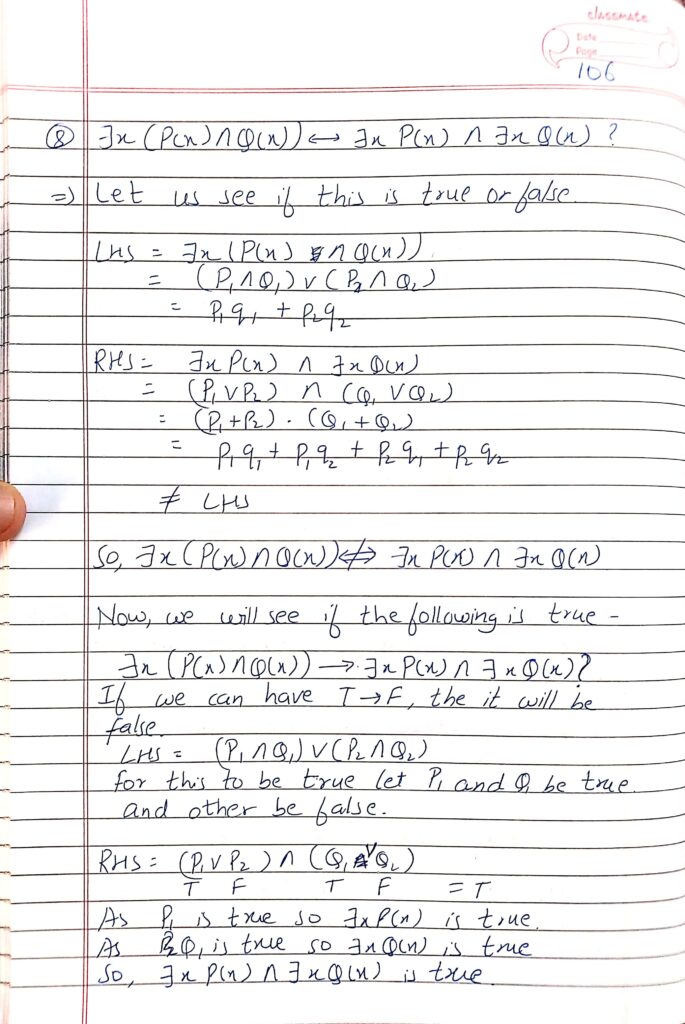 classmate
Date
Page
106
Q ∃x (P(x) ∧ Q(x)) ↔ ∃x P(x) ∧ ∃x Q(x) ?
⇒ Let us see if this is true or false.
LHS = ∃x (P(x) ∧ Q(x))
= (P₁ ∧ Q₁) ∨ (P₂ ∧ Q₂)
= p₁q₁ + p₂q₂
RHS = ∃x P(x) ∧ ∃x Q(x)
= (P₁ ∨ P₂) ∧ (Q₁ ∨ Q₂)
= (P₁ + P₂) . (Q₁ + Q₂)
= p₁q₁ + p₁q₂ + p₂q₁ + p₂q₂
≠ LHS
So, ∃x (P(x) ∧ Q(x)) ⇎ ∃x P(x) ∧ ∃x Q(x)
Now, we will see if the following is true -
∃x (P(x) ∧ Q(x)) → ∃x P(x) ∧ ∃x Q(x) ?
If we can have T → F, the it will be
false.
LHS = (P₁ ∧ Q₁) ∨ (P₂ ∧ Q₂)
for this to be true let P₁ and Q₁ be true
and other be false.
RHS = (P₁ ∨ P₂) ∧ (Q₁ ∨ Q₂)
T F T F = T
As P₁ is true so ∃x P(x) is true.
As Q₁ is true so ∃x Q(x) is true
So, ∃x P(x) ∧ ∃x Q(x) is true.